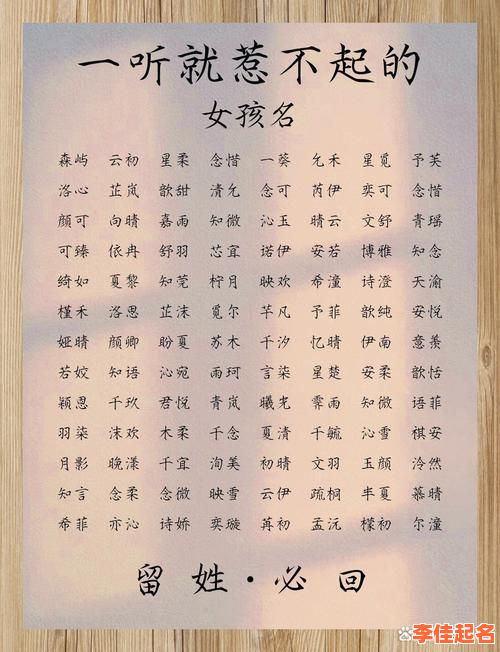 一听就惹不起的
女孩名
森屿 云初 星柔 念惜 一葵 允禾 星觅 予芙
洛心 芷岚 歆甜 清允 念可 芮伊 奕可 念惜
颜可 向晴 嘉雨 知微 沁玉 晴云 文舒 青瑶
可臻 依冉 舒羽 芯宜 诺伊 安若 博雅 知念
绮如 夏黎 知莞 柠月 映欢 希潼 诗澄 天渝
槿禾 洛思 芷沫 觅尔 芊凡 予菲 歆纯 安悦
娅晴 颜卿 盼夏 苏木 千汐 忆晴 伊南 意羡
若姣 知语 沁宛 雨珂 言柒 星楚 安柔 歆恬
颖恩 千玖 君悦 青岚 曦光 霁雨 知微 语菲
羽柒 沫欢 木柔 千念 夏清 千毓 沁雪 祺安
月影 晚漾 千宜 洵美 初晴 文羽 玉颜 泠然
知言 念柔 念微 映雪 云伊 疏桐 半夏 慕晴
希菲 亦沁 诗娇 奕璇 苒初 孟沅 檬初 尔潼
留姓·必回
李佳起名